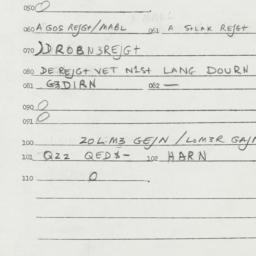 050 0
060 A GOS REJGT/MABL 061 A STLAK REJGT
070 ))DROBN3REJGT
080 DE REJGT VET N1ST LANG DOURN
081 G3DIRN 082 —
090 0
091 0
100 20L·M3 GEJN / LOM3R GAJ
101 Q22 QED$- 102 HARN
110 0